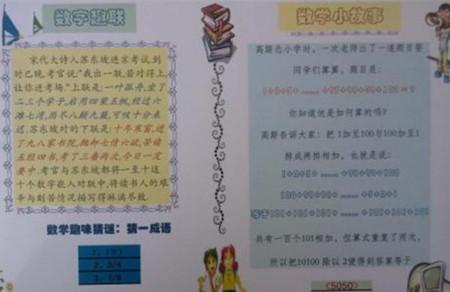 数字趣联
宋代大诗人苏东坡进京考试,到
时已晚,考官说"我出一联,若对得上,
让你进考场."上联是:一叶孤舟,坐了
二三个学子,启用四桨五帆,经过六
滩七湾,历尽八颠九簸,可叹十分来
迟.苏东坡对的下联是:十年寒窗,进
了九八家书院,抛却七情六欲,苦读
五经四书,考了三番两次,今日一定
要中.考官与苏东坡都将一至十这
十个数字嵌入对联中,将读书人的艰
辛与刻苦情况描写得淋漓尽致.
数学趣味猜谜:猜一成语
2、3/4
3、7/8
数学小故事
高斯念小学时,一次老师出了一道题目要
同学们算算,题目是:
你知道他是如何算的吗?
高斯告诉大家:把1加至100与100加至1
排成两排相加,也就是说:
共有一百个101相加,但算式重复了两次,
所以把10100除以2便得到答案等于
<5050>